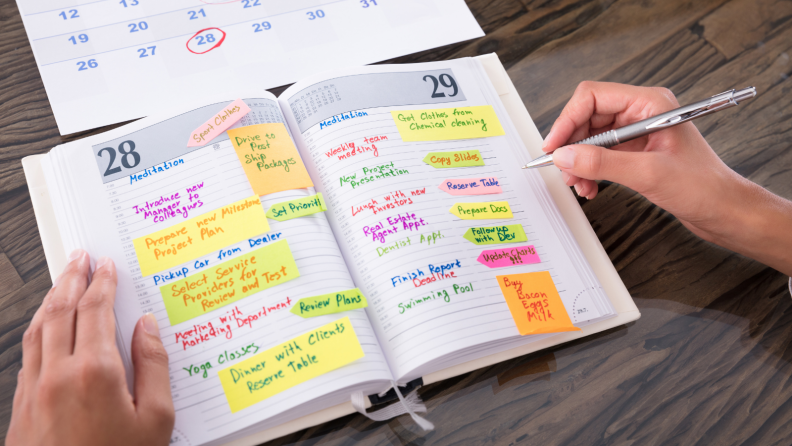 12 13 21
19 20 21 22 23 24
26 27 28 29 30 31
28
Sport Clothes
Meditation
Drive to
Post
Ship
Packages
Introduce new
Manager to
colleagues
Set Prioriti
Prepare new Milestone
Project Plan
Pickup Car from Dealer
Select Service
Providers for
Review and Test
Review Plans
Meeting with
Marketing Department
Yoga Classes
Dinner with Clients
Reserve Table
29
Meditation
Got Clothes from
Chemical cleaning
Weekly team
meeting
Copy Slides
New Project
Presentation
Reserve Table
Lunch with new
investors
Prepare Docs
Real Estate
Agent Appt.
Followup
with Dev
Dentist Appt.
Update Charts
!!!
Finish Report
Deadline
Buy
Bacon
Eggs
Milk
Swimming Pool